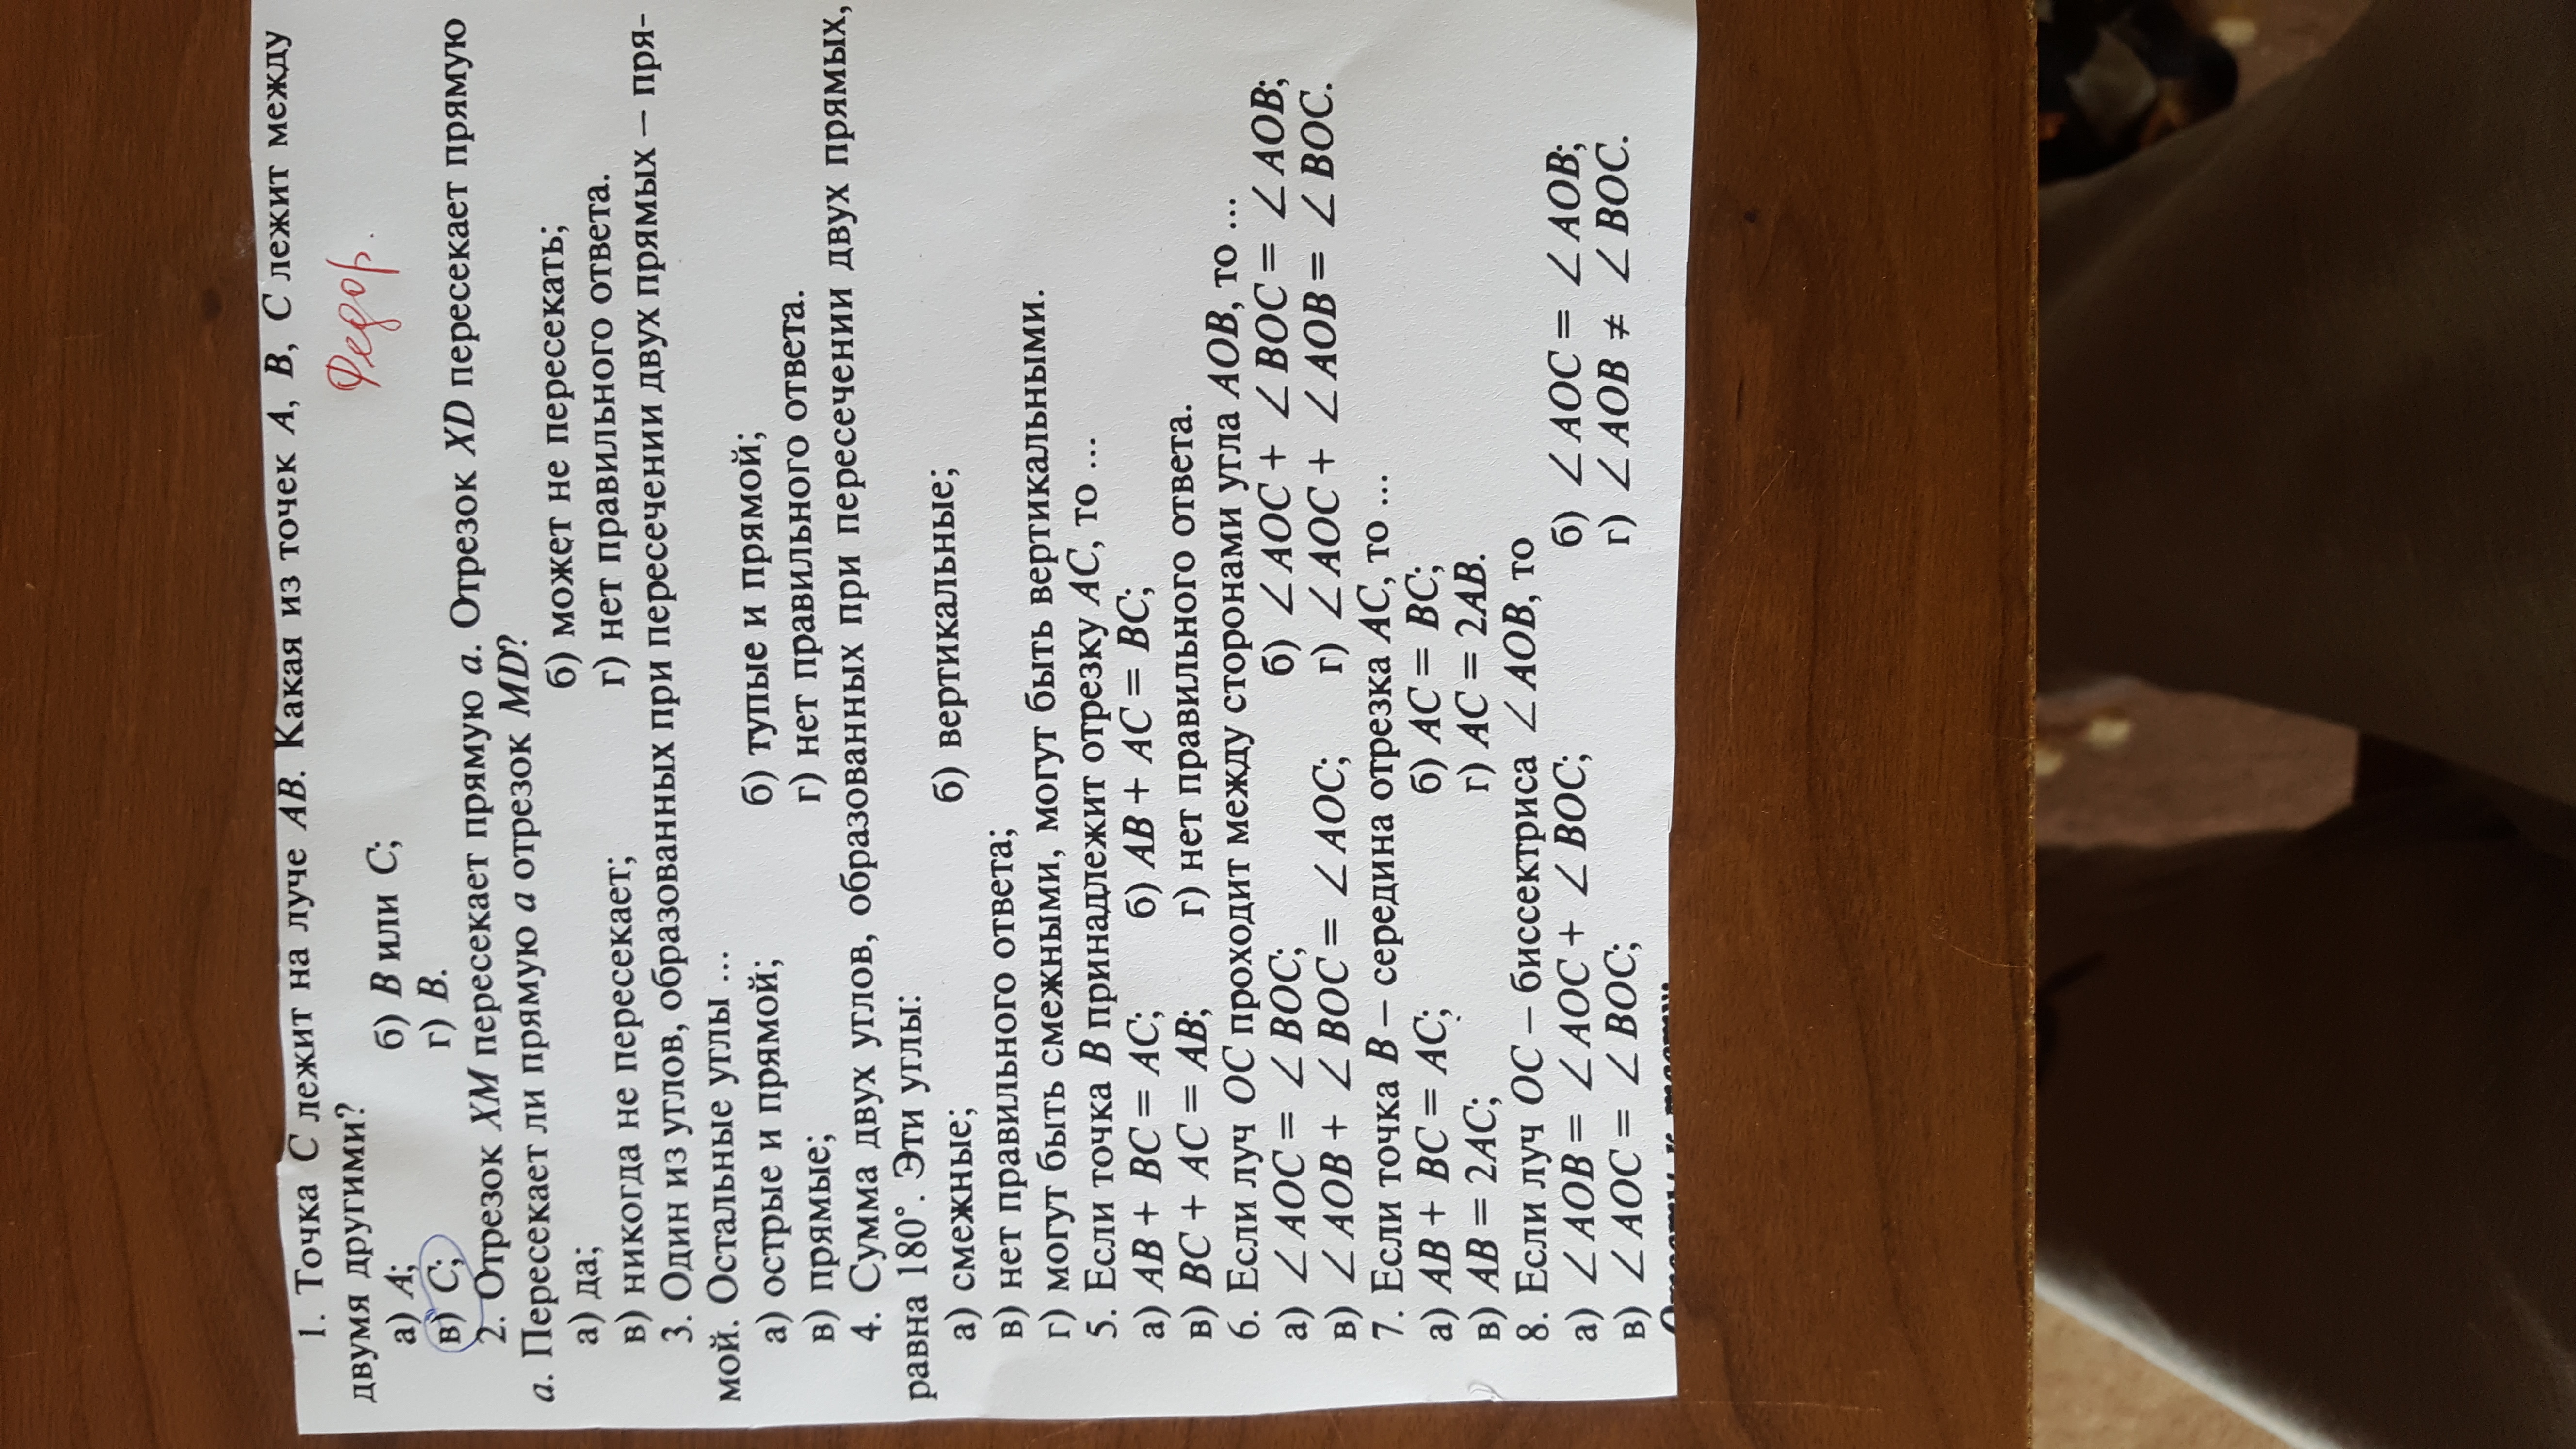 1. Точка C лежит на луче AB. Какая из точек A, B, C лежит между
двумя другими?
Федор.
а) A; б) B или C;
в) C; г) B.
2. Отрезок XM пересекает прямую a. Отрезок XD пересекает прямую
a. Пересекает ли прямую a отрезок MD?
а) да; б) может не пересекать;
в) никогда не пересекает; г) нет правильного ответа.
3. Один из углов, образованных при пересечении двух прямых – пря-
мой. Остальные углы ...
а) острые и прямой; б) тупые и прямой;
в) прямые; г) нет правильного ответа.
4. Сумма двух углов, образованных при пересечении двух прямых,
равна 180°. Эти углы:
а) смежные; б) вертикальные;
в) нет правильного ответа;
г) могут быть смежными, могут быть вертикальными.
5. Если точка B принадлежит отрезку AC, то ...
а) AB + BC = AC; б) AB + AC = BC;
в) BC + AC = AB; г) нет правильного ответа.
6. Если луч OC проходит между сторонами угла AOB, то ...
а) ∠AOC = ∠BOC; б) ∠AOC + ∠BOC = ∠AOB;
в) ∠AOB + ∠BOC = ∠AOC; г) ∠AOC + ∠AOB = ∠BOC.
7. Если точка B – середина отрезка AC, то ...
а) AB + BC = AC; б) AC = BC;
в) AB = 2AC; г) AC = 2AB.
8. Если луч OC – биссектриса ∠AOB, то
а) ∠AOB = ∠AOC + ∠BOC; б) ∠AOC = ∠AOB;
в) ∠AOC = ∠BOC; г) ∠AOB ≠ ∠BOC.